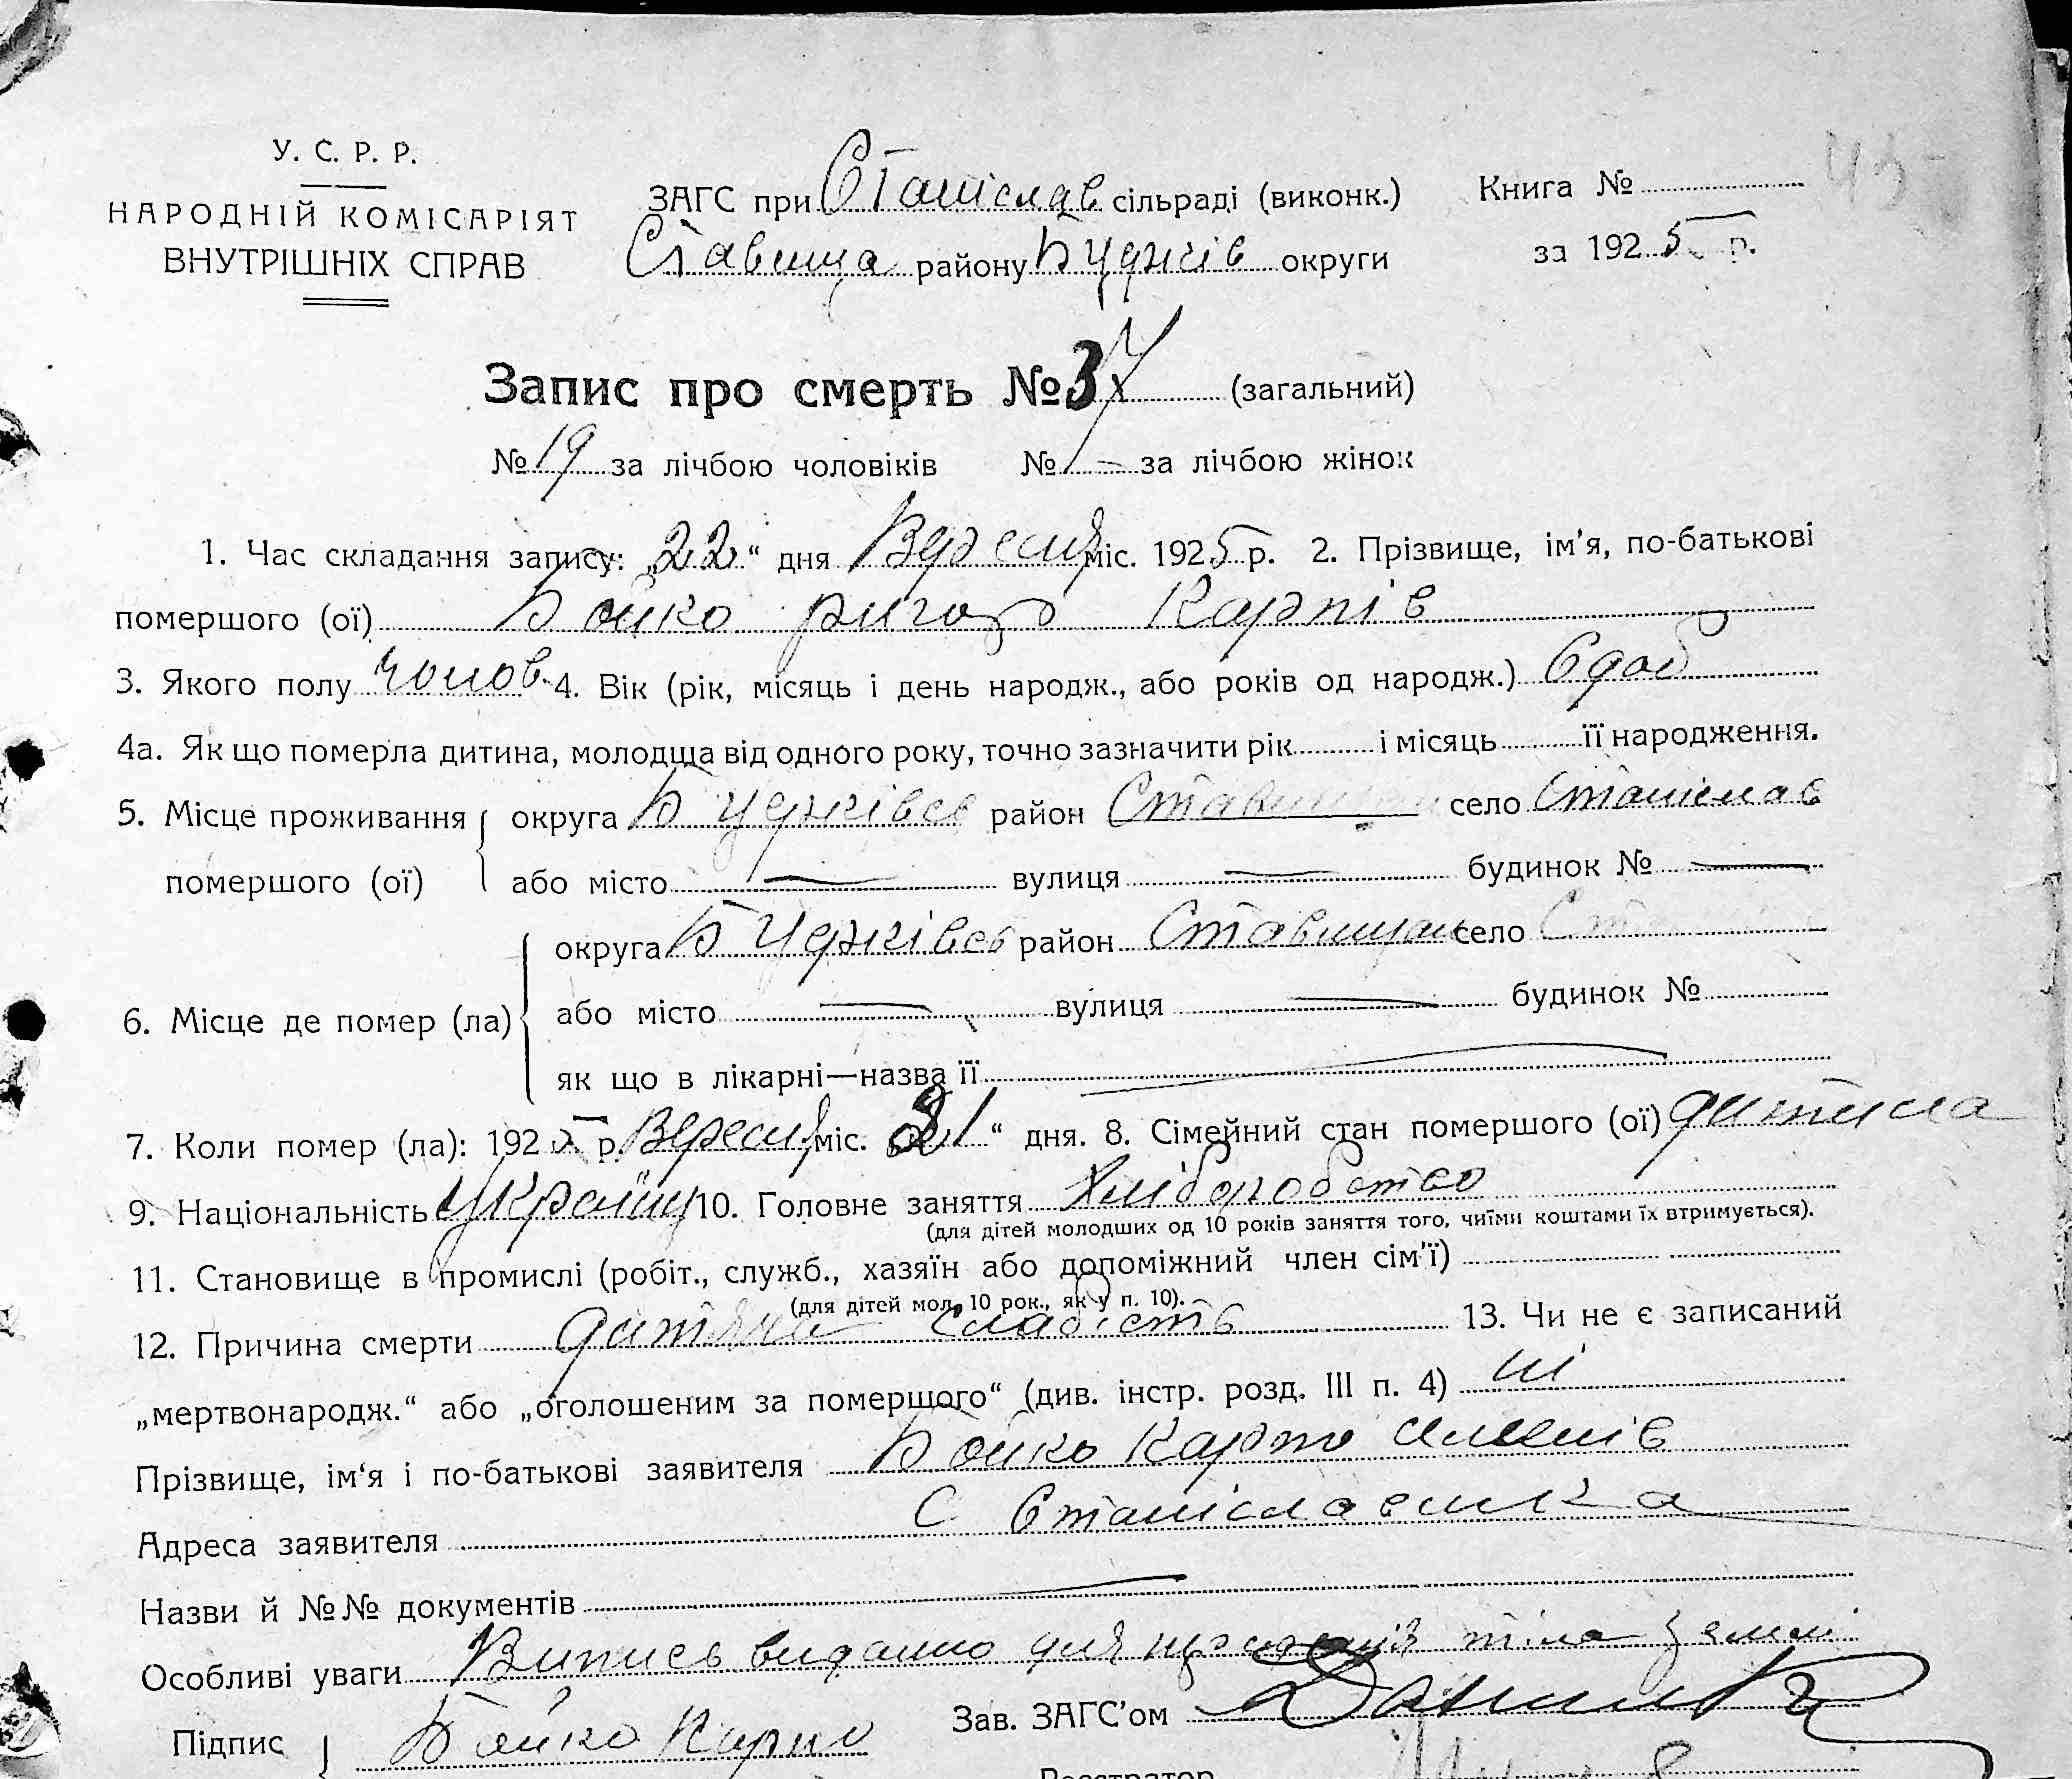 У. С. Р. Р.
НАРОДНІЙ КОМІСАРІЯТ
ВНУТРІШНІХ СПРАВ
ЗАГС при Станіслав сільраді (виконк.)
Ставища району Буджів округи
Книга №
за 1925 р.
43
Запис про смерть № 37 (загальний)
№ 19 за лічбою чоловіків № — за лічбою жінок
1. Час складання запису: „22“ дня Вересня міс. 1925 р. 2. Прізвище, ім'я, по-батькові
помершого (ої) Бойко Карпів
3. Якого полу чолов 4. Вік (рік, місяць і день народж., або років од народж.) 6 доб
4а. Як що померла дитина, молодща від одного року, точно зазначити рік і місяць її народження.
5. Місце проживання помершого (ої) округа Буджівсь район Ставищан село Станіслав
або місто — вулиця — будинок № —
6. Місце де помер (ла) округа Буджівсь район Ставищан село Ст
або місто — вулиця — будинок №
як що в лікарні—назва її
7. Коли помер (ла): 1925 р. Вересня міс. „21“ дня. 8. Сімейний стан помершого (ої) дитина
9. Національність Україн 10. Головне заняття Хліборобство
(для дітей молодших од 10 років заняття того, чиїми коштами їх втримується).
11. Становище в промислі (робіт., служб., хазяїн або допоміжний член сім'ї)
(для дітей мол. 10 рок., як у п. 10).
12. Причина смерти дитяча слабість 13. Чи не є записаний
„мертвонародж.“ або „оголошеним за померщого“ (див. інстр. розд. III п. 4) ні
Прізвище, ім'я і по-батькові заявителя Бойко Карпо
Адреса заявителя С. Станіславчика
Назви й №№ документів
Особливі уваги Випись видано для придання тіла землі
Зав. ЗАГС'ом
Підпис Бойко Карпо
Реєстратор